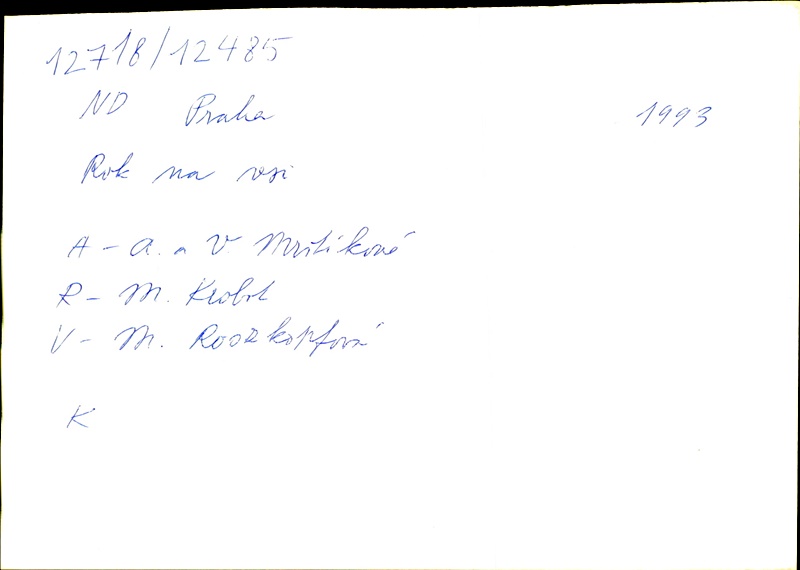 12718/12485
ND Praha 1993
Rok na vsi
A - A. a V. Mrštíkové
R - M. Krobot
V - M. Roszkopfová
K